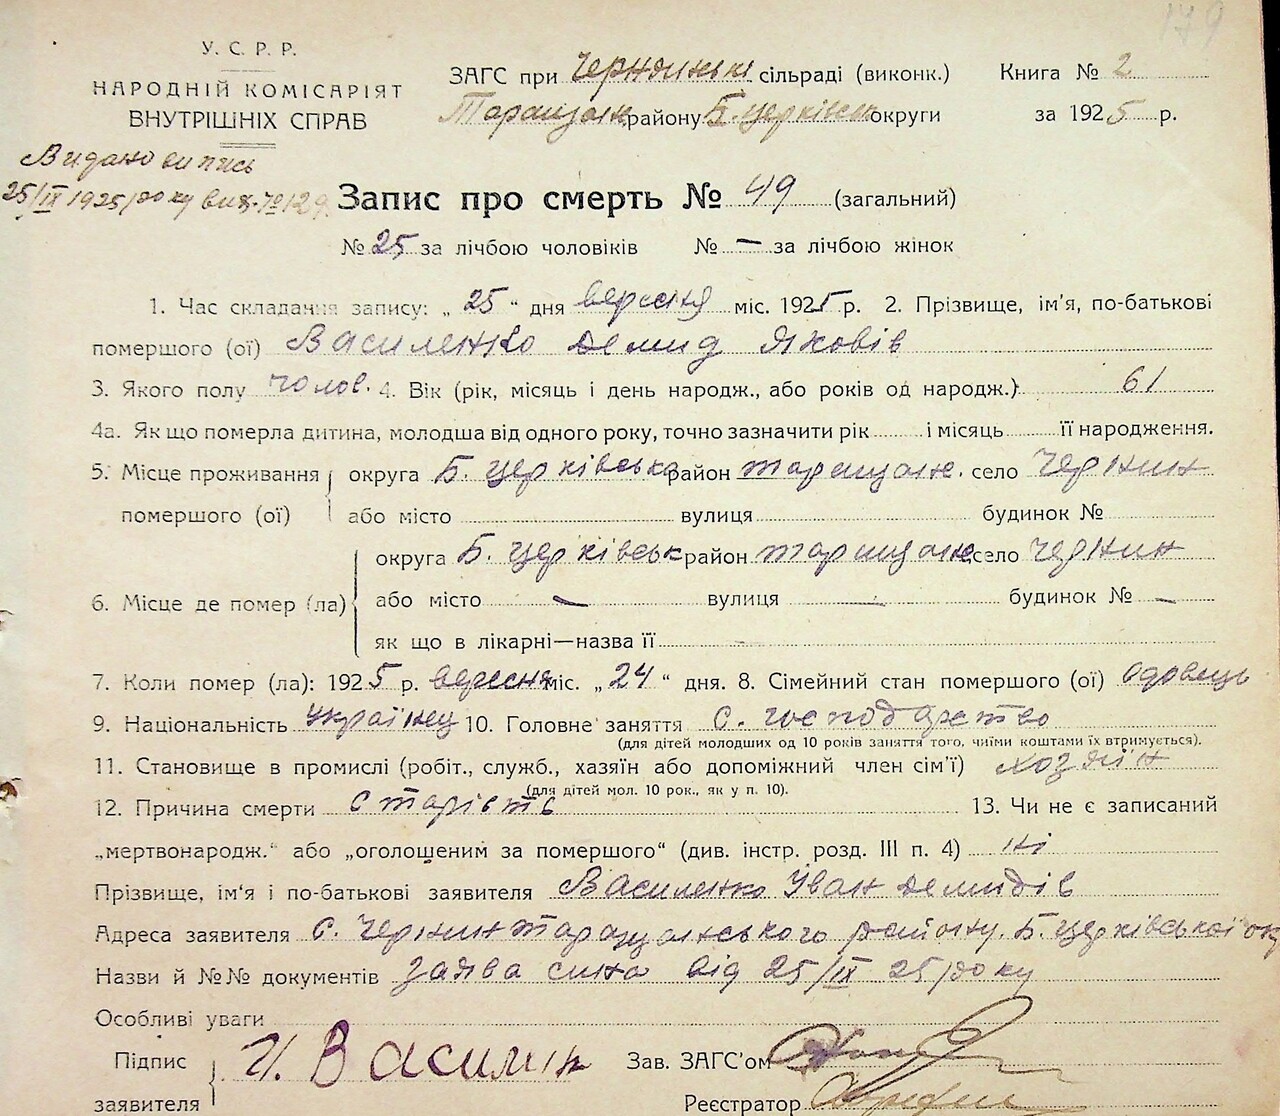 179
У. С. Р. Р.
НАРОДНІЙ КОМІСАРІЯТ
ВНУТРІШНІХ СПРАВ
ЗАГС при Чернинські сільраді (виконк.) Книга № 2
Таращан. району Б. церківськ округи за 1925 р.
Видано випись
25/IX 1925 року вих. № 129
Запис про смерть № 49 (загальний)
№ 25 за лічбою чоловіків № — за лічбою жінок
1. Час складання запису: „ 25 “ дня вересня міс. 1925 р. 2. Прізвище, ім'я, по-батькові
помершого (ої) Василенко Демид Яковів
3. Якого полу чолов. 4. Вік (рік, місяць і день народж., або років од народж.) 61
4а. Як що померла дитина, молодша від одного року, точно зазначити рік і місяць її народження.
5. Місце проживання округа Б. церківська район таращан. село Чернин
помершого (ої) або місто вулиця будинок №
округа Б. церківськ район таращан село Чернин
6. Місце де помер (ла) або місто — вулиця — будинок № —
як що в лікарні—назва її
7. Коли помер (ла): 1925 р. вересня міс. „ 24 “ дня. 8. Сімейний стан помершого (ої) одовець
9. Національність Українец 10. Головне заняття с. господарство
(для дітей молодших од 10 років заняття того, чиїми коштами їх втримується).
11. Становище в промислі (робіт., служб., хазяїн або допоміжний член сім'ї) хозяїн
(для дітей мол. 10 рок., як у п. 10).
12. Причина смерти старість 13. Чи не є записаний
„мертвонародж.“ або „оголошеним за помершого“ (див. інстр. розд. III п. 4) ні
Прізвище, ім'я і по-батькові заявителя Василенко Іван Демидів
Адреса заявителя с. Чернин Таращанського району. Б. церківської ок
Назви й №№ документів заява сина від 25/IX 25 року
Особливі уваги
Підпис И. Василин Зав. ЗАГС'ом
заявителя Реєстратор